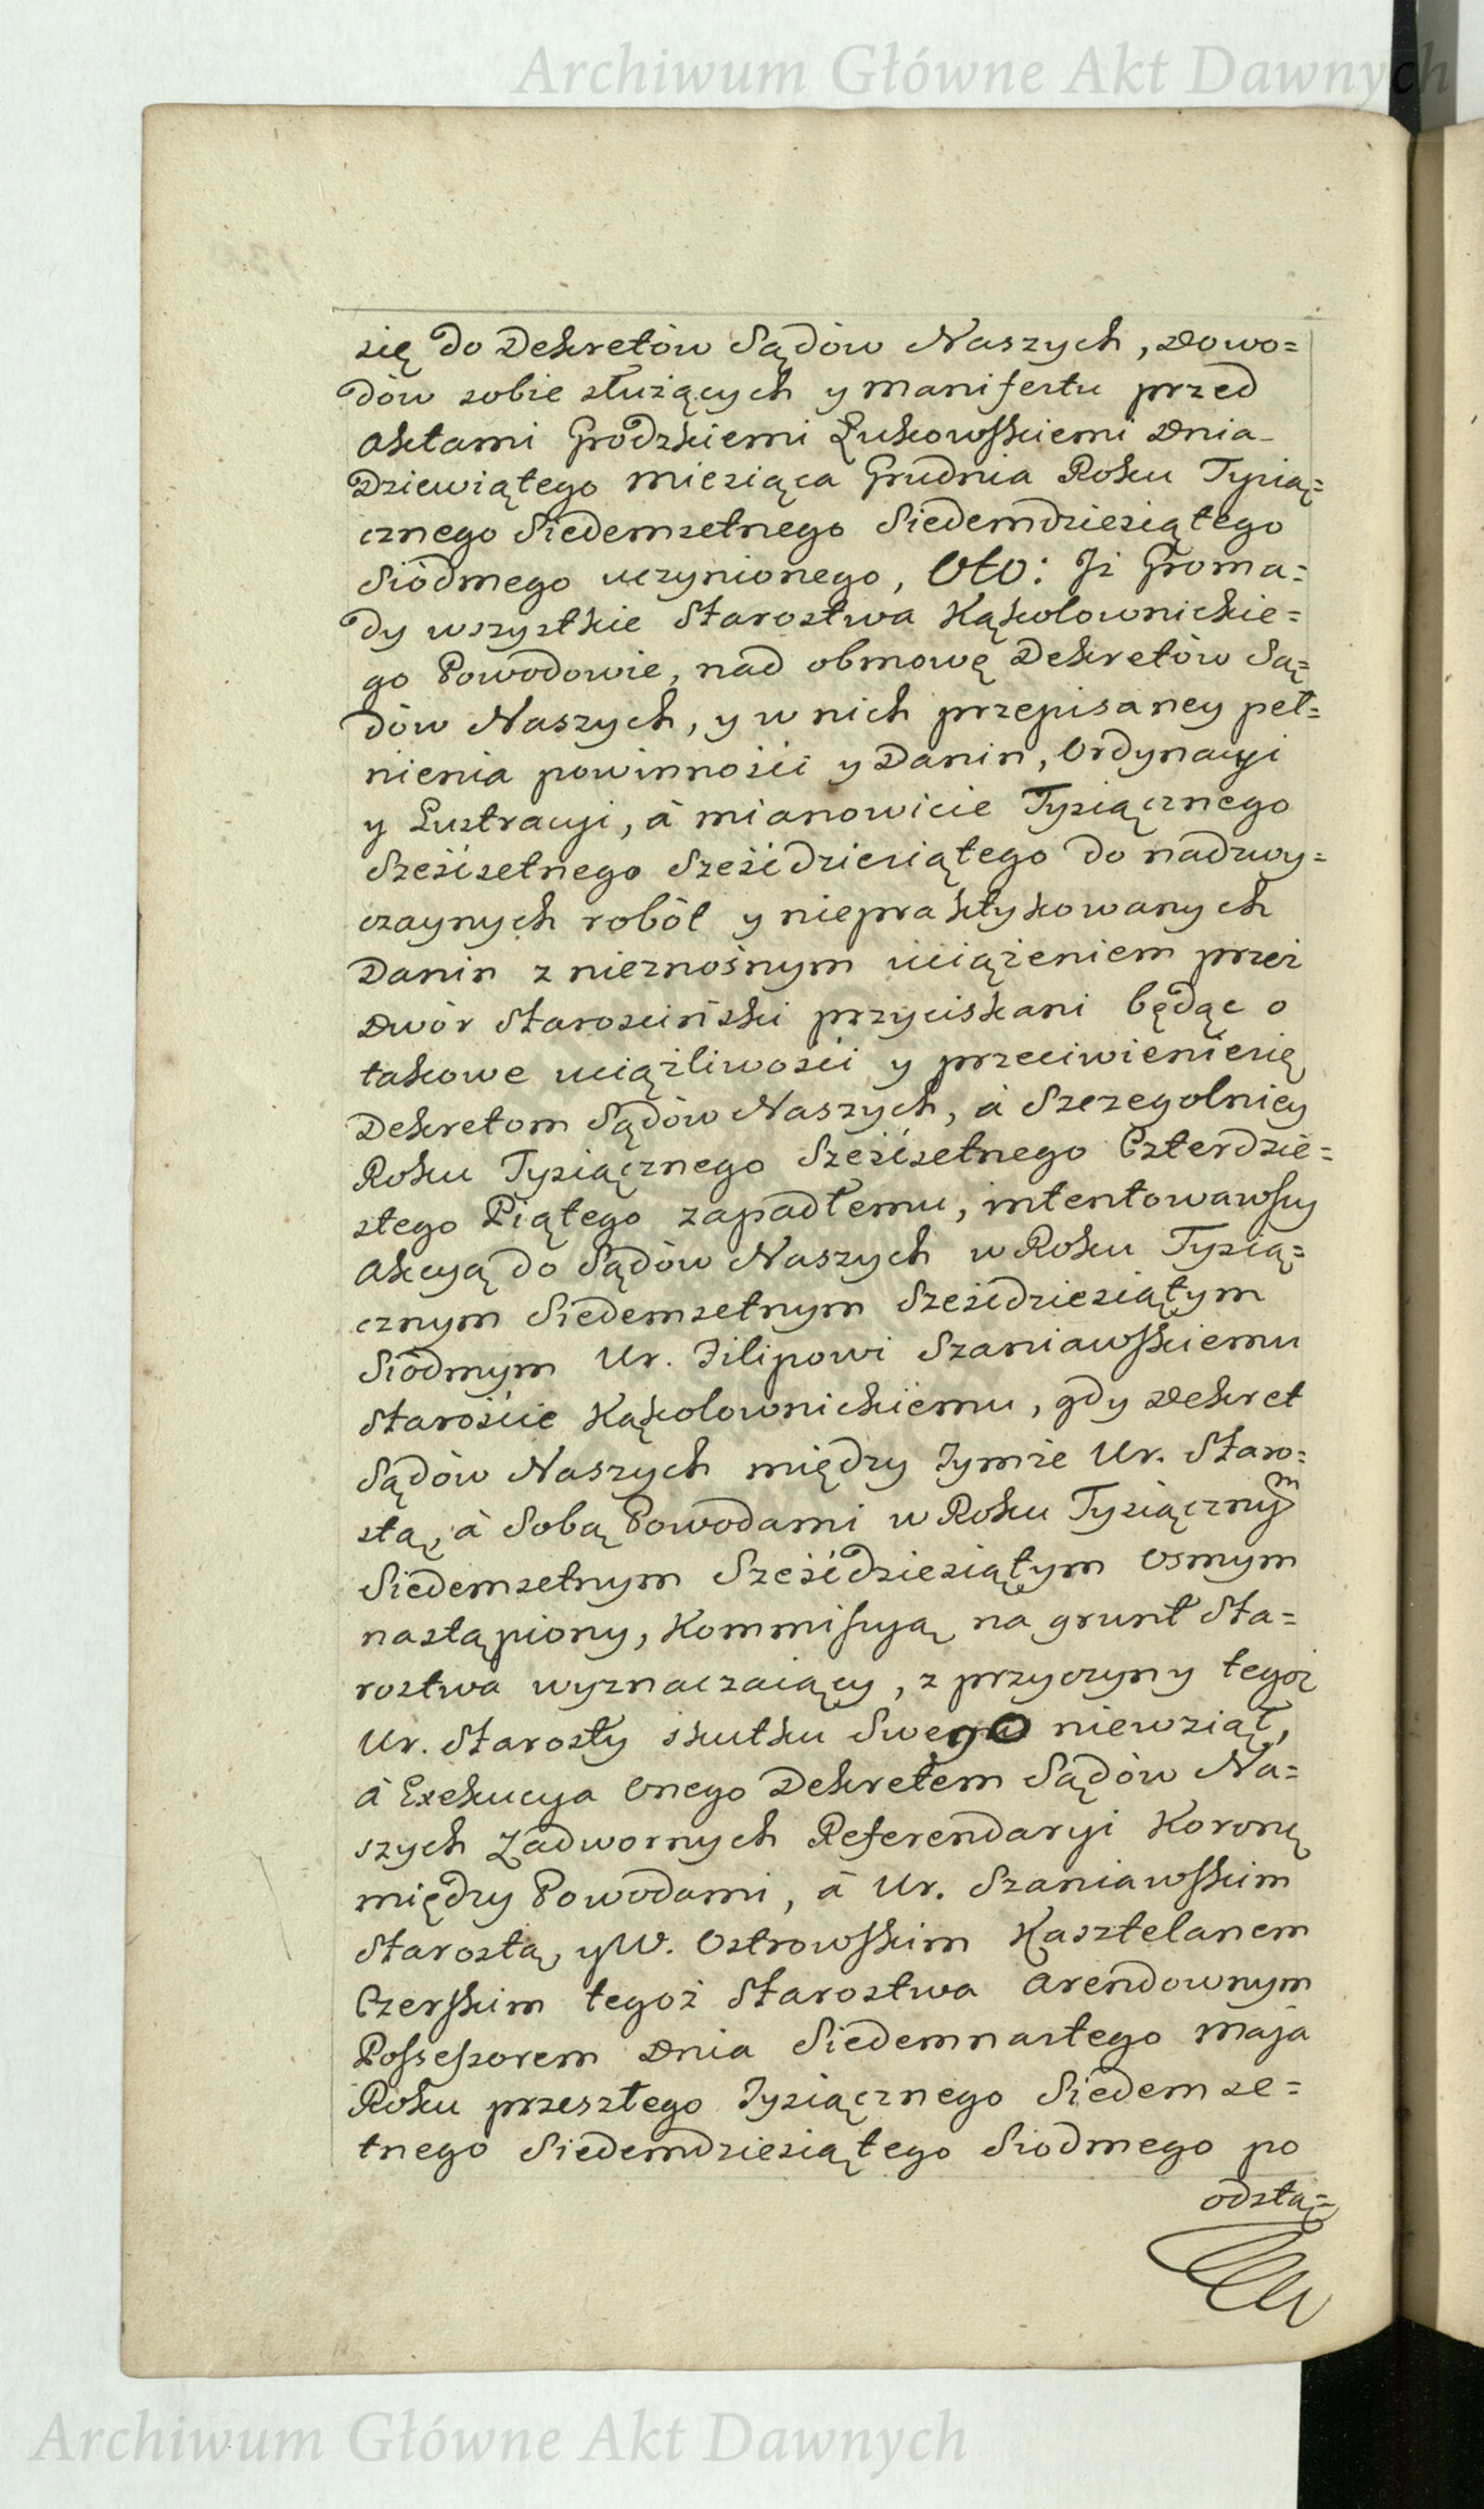 Archiwum Główne Akt Dawnych
się do Dekretów Sądów Naszych, Dowo=
dów sobie służących y manifestu przed
Aktami Grodzkiemi Łukowskiemi Dnia
Dziewiątego miesiąca Grudnia Roku Tysią=
cznego Siedemsetnego Siedemdziesiątego
Siódmego uczynionego, Oto: Iż Groma=
dy wszystkie Starostwa Kąkolownickie=
go Powodowie, nad obmowę Dekretów Są=
dów Naszych, y w nich przepisaney peł=
nienia powinności y Danin, Ordynacyi
y Lustracyi, à mianowicie Tysiącznego
Sześćsetnego Sześćdziesiątego do nadzwy=
czaynych robót y niepraktykowanych
Danin z nieznośnym uciążeniem przez
Dwór Starościński przyciskani będąc o
takowe uciążliwości y przeciwienieśię
Dekretom Sądów Naszych, à Szczegolniey
Roku Tysiącznego Sześćsetnego Czterdzie=
stego Piątego zapadłemu, intentowawszy
Akcyą do Sądów Naszych w Roku Tysią=
cznym Siedemsetnym Sześćdziesiątym
Siódmym Ur. Filipowi Szaniawskiemu
Staroście Kąkolownickiemu, gdy Dekret
Sądów Naszych między Tymże Ur. Staro=
stą, à Sobą Powodami w Roku Tysiącznym
Siedemsetnym Sześćdziesiątym Osmym
nastąpiony, Kommissyą na grunt Sta=
rostwa wyznaczaiący, z przyczyny tegoż
Ur. Starosty skutku Swego niewziął,
à Exekucya Onego Dekretem Sądów Na=
szych Zadwornych Referendaryi Koronę
między Powodami, à Ur. Szaniawskim
Starostą, y W. Ostrowskim Kasztelanem
Czerskim tegoż Starostwa Arendownym
Possessorem Dnia Siedemnastego maja
Roku przeszłego Tysiącznego Siedemse=
tnego Siedemdziesiątego Siodmego po
odstą=
Archiwum Główne Akt Dawnych